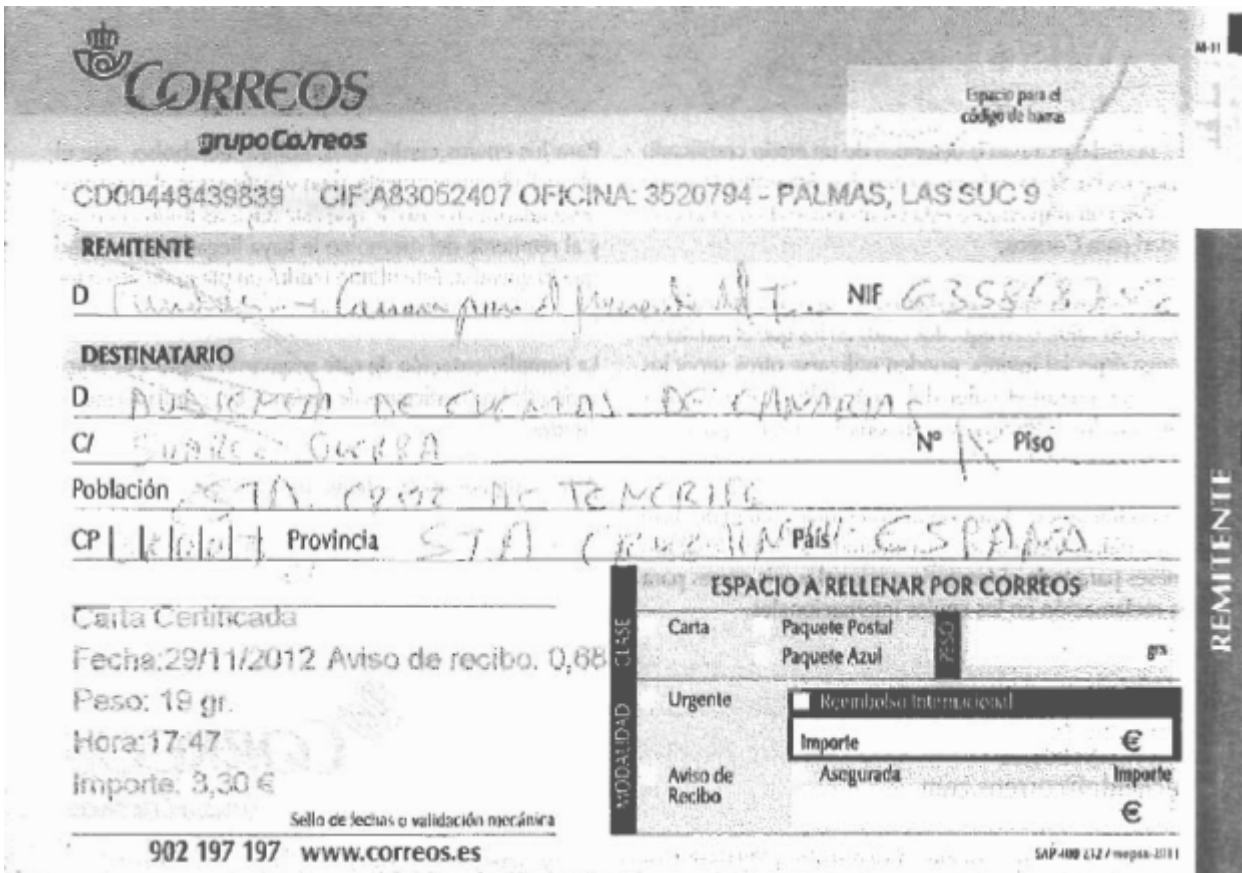 M-11
CORREOS
grupo Correos
Espacio para el
código de barras
CD00448439839 CIF:A83052407 OFICINA: 3520794 - PALMAS, LAS SUC 9
REMITENTE
D Canaria para el del NIF
DESTINATARIO
D AUDIENCIA DE CUENTAS DE CANARIAS
C/ SUAREZ GUERRA Nº Piso
Población STA CRUZ DE TENERIFE
CP Provincia STA CRUZ País ESPAÑA
Carta Certificada
Fecha:29/11/2012 Aviso de recibo. 0,68
Peso: 19 gr.
Hora:17:47
Importe: 3,30 €
Sello de fechas o validación mecánica
902 197 197 www.correos.es
ESPACIO A RELLENAR POR CORREOS
CLASE
Carta Paquete Postal
Paquete Azul
PESO
grs
MODALIDAD
Urgente Reembolso Internacional
Importe €
Aviso de Recibo Asegurada Importe
€
REMITENTE